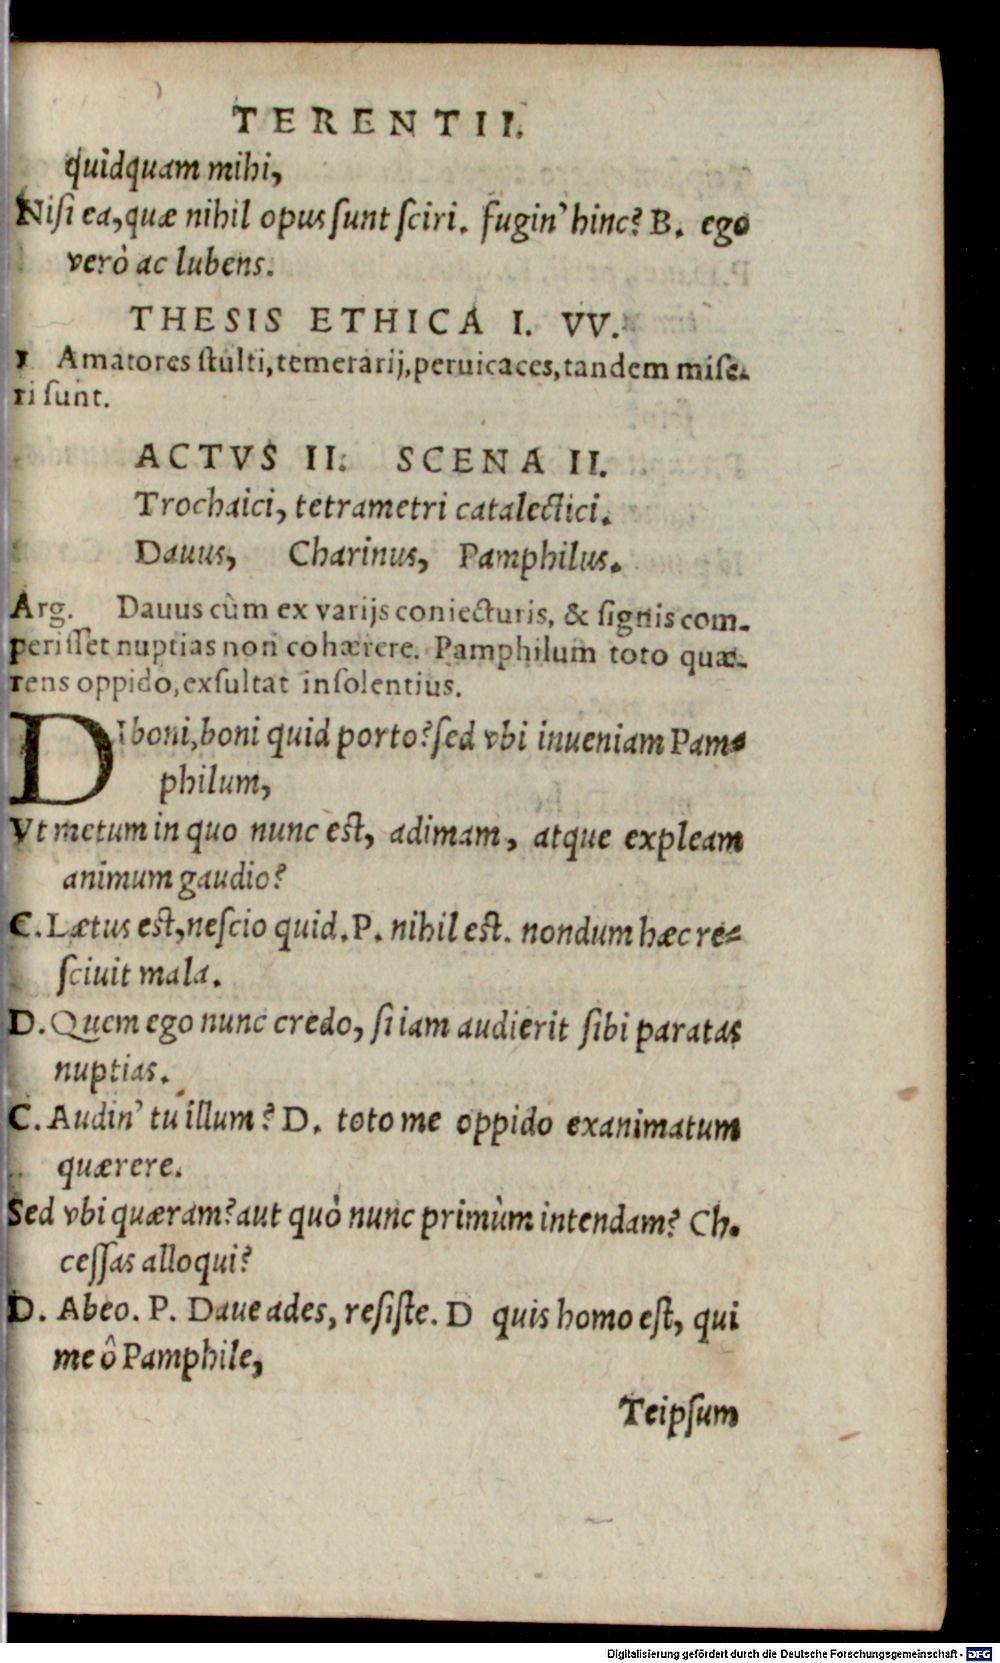 TERENTII.
quidquam mihi,
Niſi ea, quæ nihil opus ſunt ſciri. fugin' hinc? B. ego
verò ac lubens.
THESIS ETHICA I. VV.
1 Amatores ſtulti, temerarij, peruicaces, tandem miſe-
ri ſunt.
ACTVS II. SCENA II.
Trochaici, tetrametri catalectici.
Dauus, Charinus, Pamphilus.
Arg. Dauus cùm ex varijs coniecturis, & ſignis com-
periſſet nuptias non cohærere. Pamphilum toto quæ-
rens oppido, exſultat inſolentius.
DI boni, boni quid porto? ſed vbi inueniam Pam-
philum,
Vt metum in quo nunc eſt, adimam, atque expleam
animum gaudio?
C. Lætus eſt, neſcio quid. P. nihil eſt. nondum hæc re-
ſciuit mala.
D. Quem ego nunc credo, ſi iam audierit ſibi paratas
nuptias.
C. Audin' tu illum? D. toto me oppido exanimatum
quærere.
Sed vbi quæram? aut quò nunc primùm intendam? Ch.
ceſſas alloqui?
D. Abeo. P. Daue ades, reſiſte. D quis homo eſt, qui
me ô Pamphile,
Teipſum
Digitalisierung gefördert durch die Deutsche Forschungsgemeinschaft - DFG